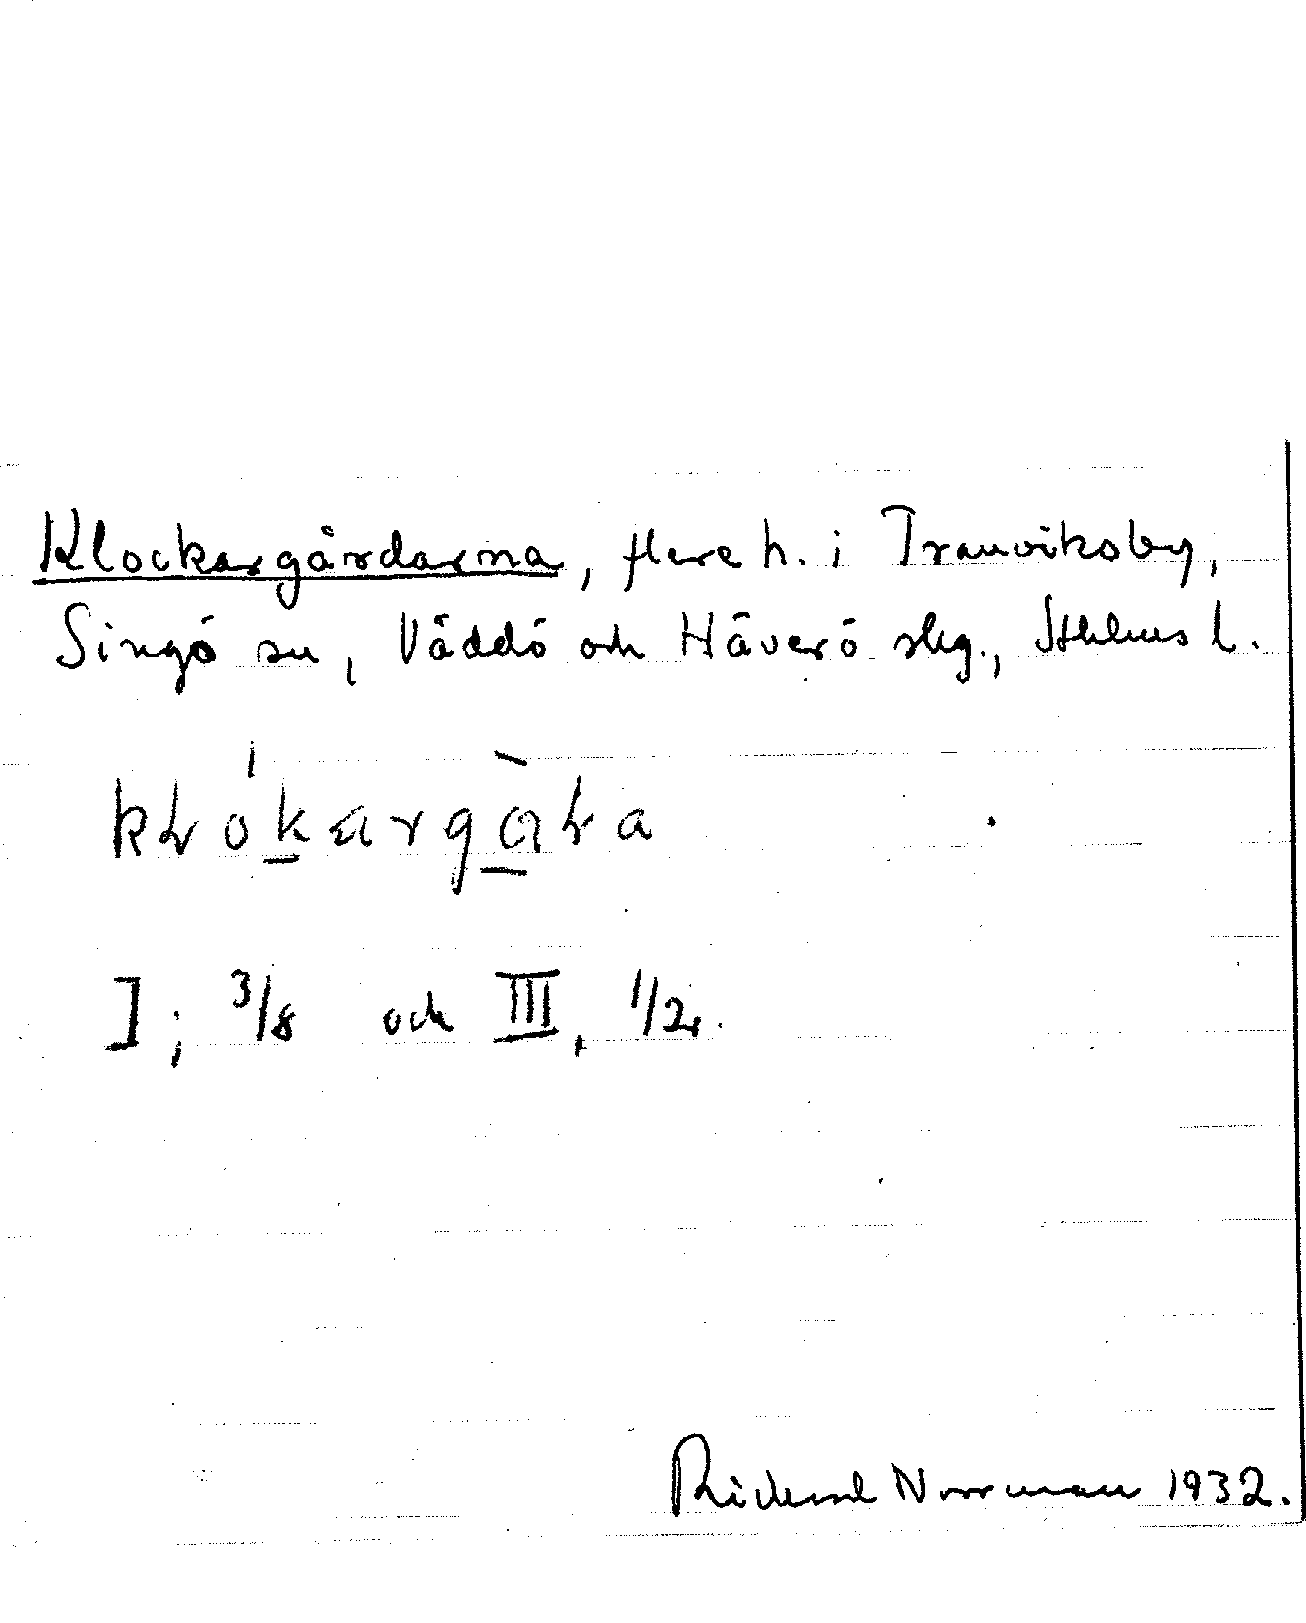 Klockargårdarna, flere h. i Tranviksby,
Singö sn, Väddö och Häverö skg., Sthlms l.
kłókargàła
I; 3/8 och III, 1/2.
Richard Norrman 1932.